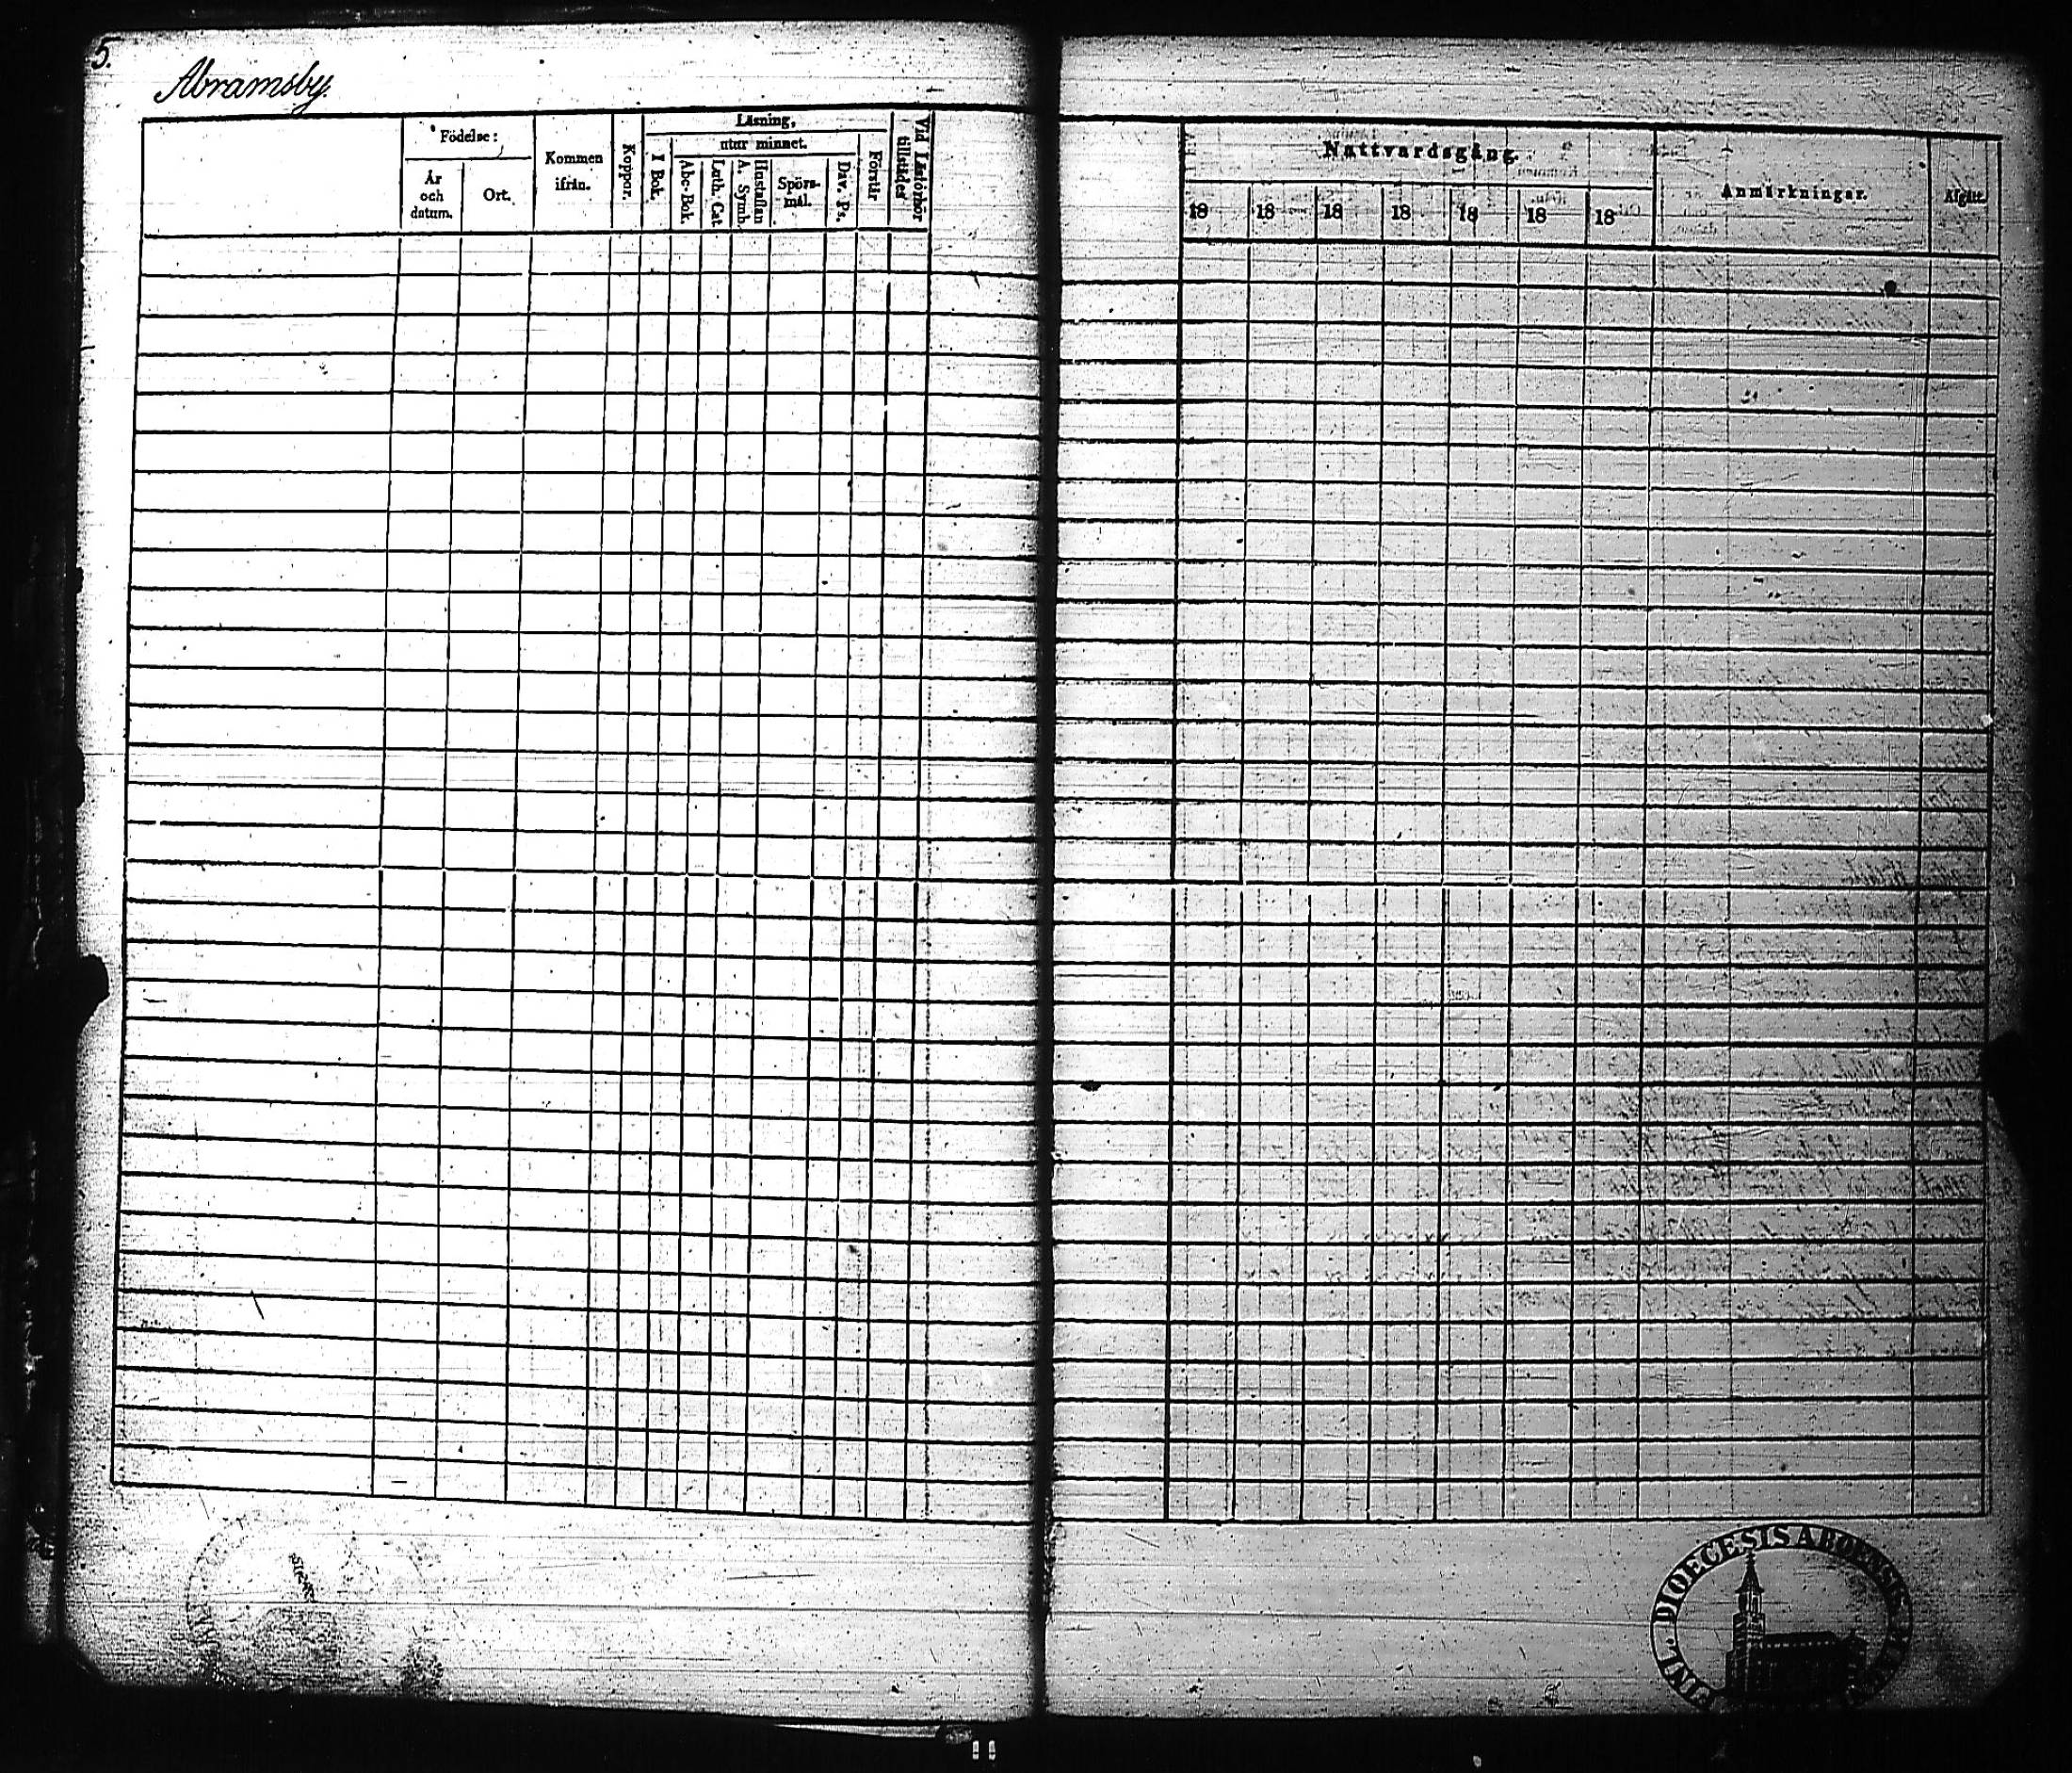 5.
Abramsby.
Födelse:
År och datum.
Ort.
Kommen ifrån.
Koppor.
Läsning,
I Bok.
utur minnet.
Abc-Bok.
Luth. Cat.
Hustaflan A. Symb.
Spörs-mål.
Dav. Ps.
Förstår
Vid Läsförhör tillstädes
Nattvardsgång.
18 18 18 18 18 18 18
Anmärkningar.
Afgått.
DIOECESIS ABOENSIS